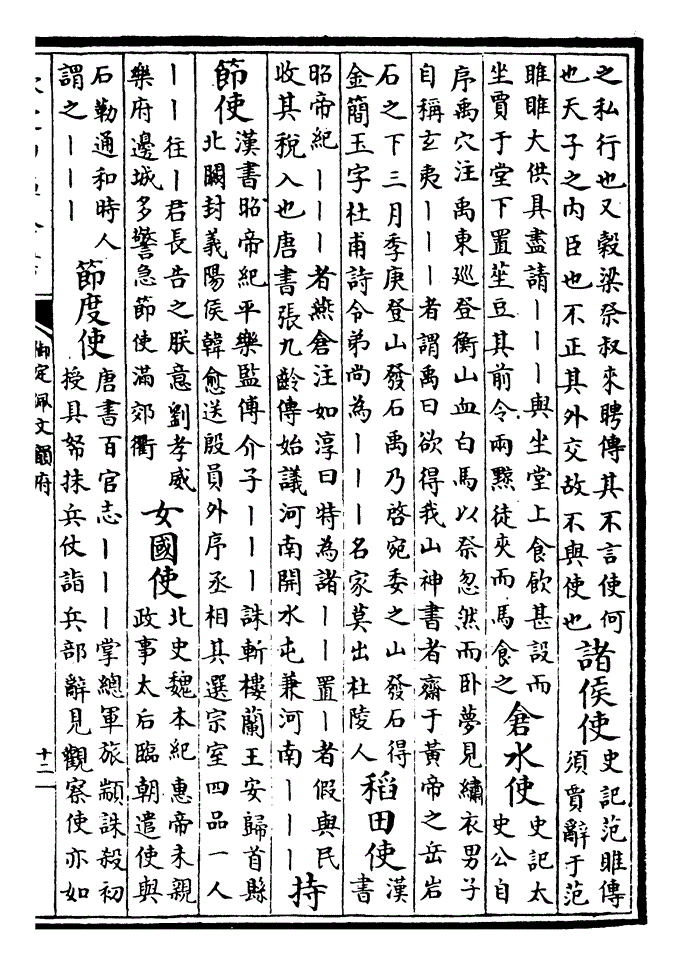 之私行也又穀梁祭叔來聘傳其不言使何
也天子之内臣也不正其外交故不與使也
諸侯使
史記范睢傳
須賈辭于范
睢睢大供具盡請丨丨丨與坐堂上食飲甚設而
坐賈于堂下置莝豆其前令兩黥徒夾而馬食之
倉水使
史記太
史公自
序禹穴注禹東廵登衡山血白馬以祭忽然而卧夢見繡衣男子
自稱玄夷丨丨丨者謂禹曰欲得我山神書者齋于黄帝之岳岩
石之下三月季庚登山發石禹乃啓宛委之山發石得
金簡玉字杜甫詩令弟尚為丨丨丨名家莫出杜陵人
稻田使
漢
書
昭帝紀丨丨丨者燕倉注如淳曰特為諸丨丨置丨者假與民
收其稅入也唐書張九齡傳始議河南開水屯兼河南丨丨丨
持
節使
漢書昭帝紀平樂監傅介子丨丨丨誅斬樓蘭王安歸首縣
北闕封義陽侯韓愈送殷員外序丞相其選宗室四品一人
丨丨往丨君長告之朕意劉孝威
樂府邊城多警急節使滿郊衢
女國使
北史魏本紀惠帝未親
政事太后臨朝遣使與
石勒通和時人
謂之丨丨丨
節度使
唐書百官志丨丨丨掌總軍旅顓誅殺初
授具帑抹兵仗詣兵部辭見觀察使亦如
御定佩文韻府
十二